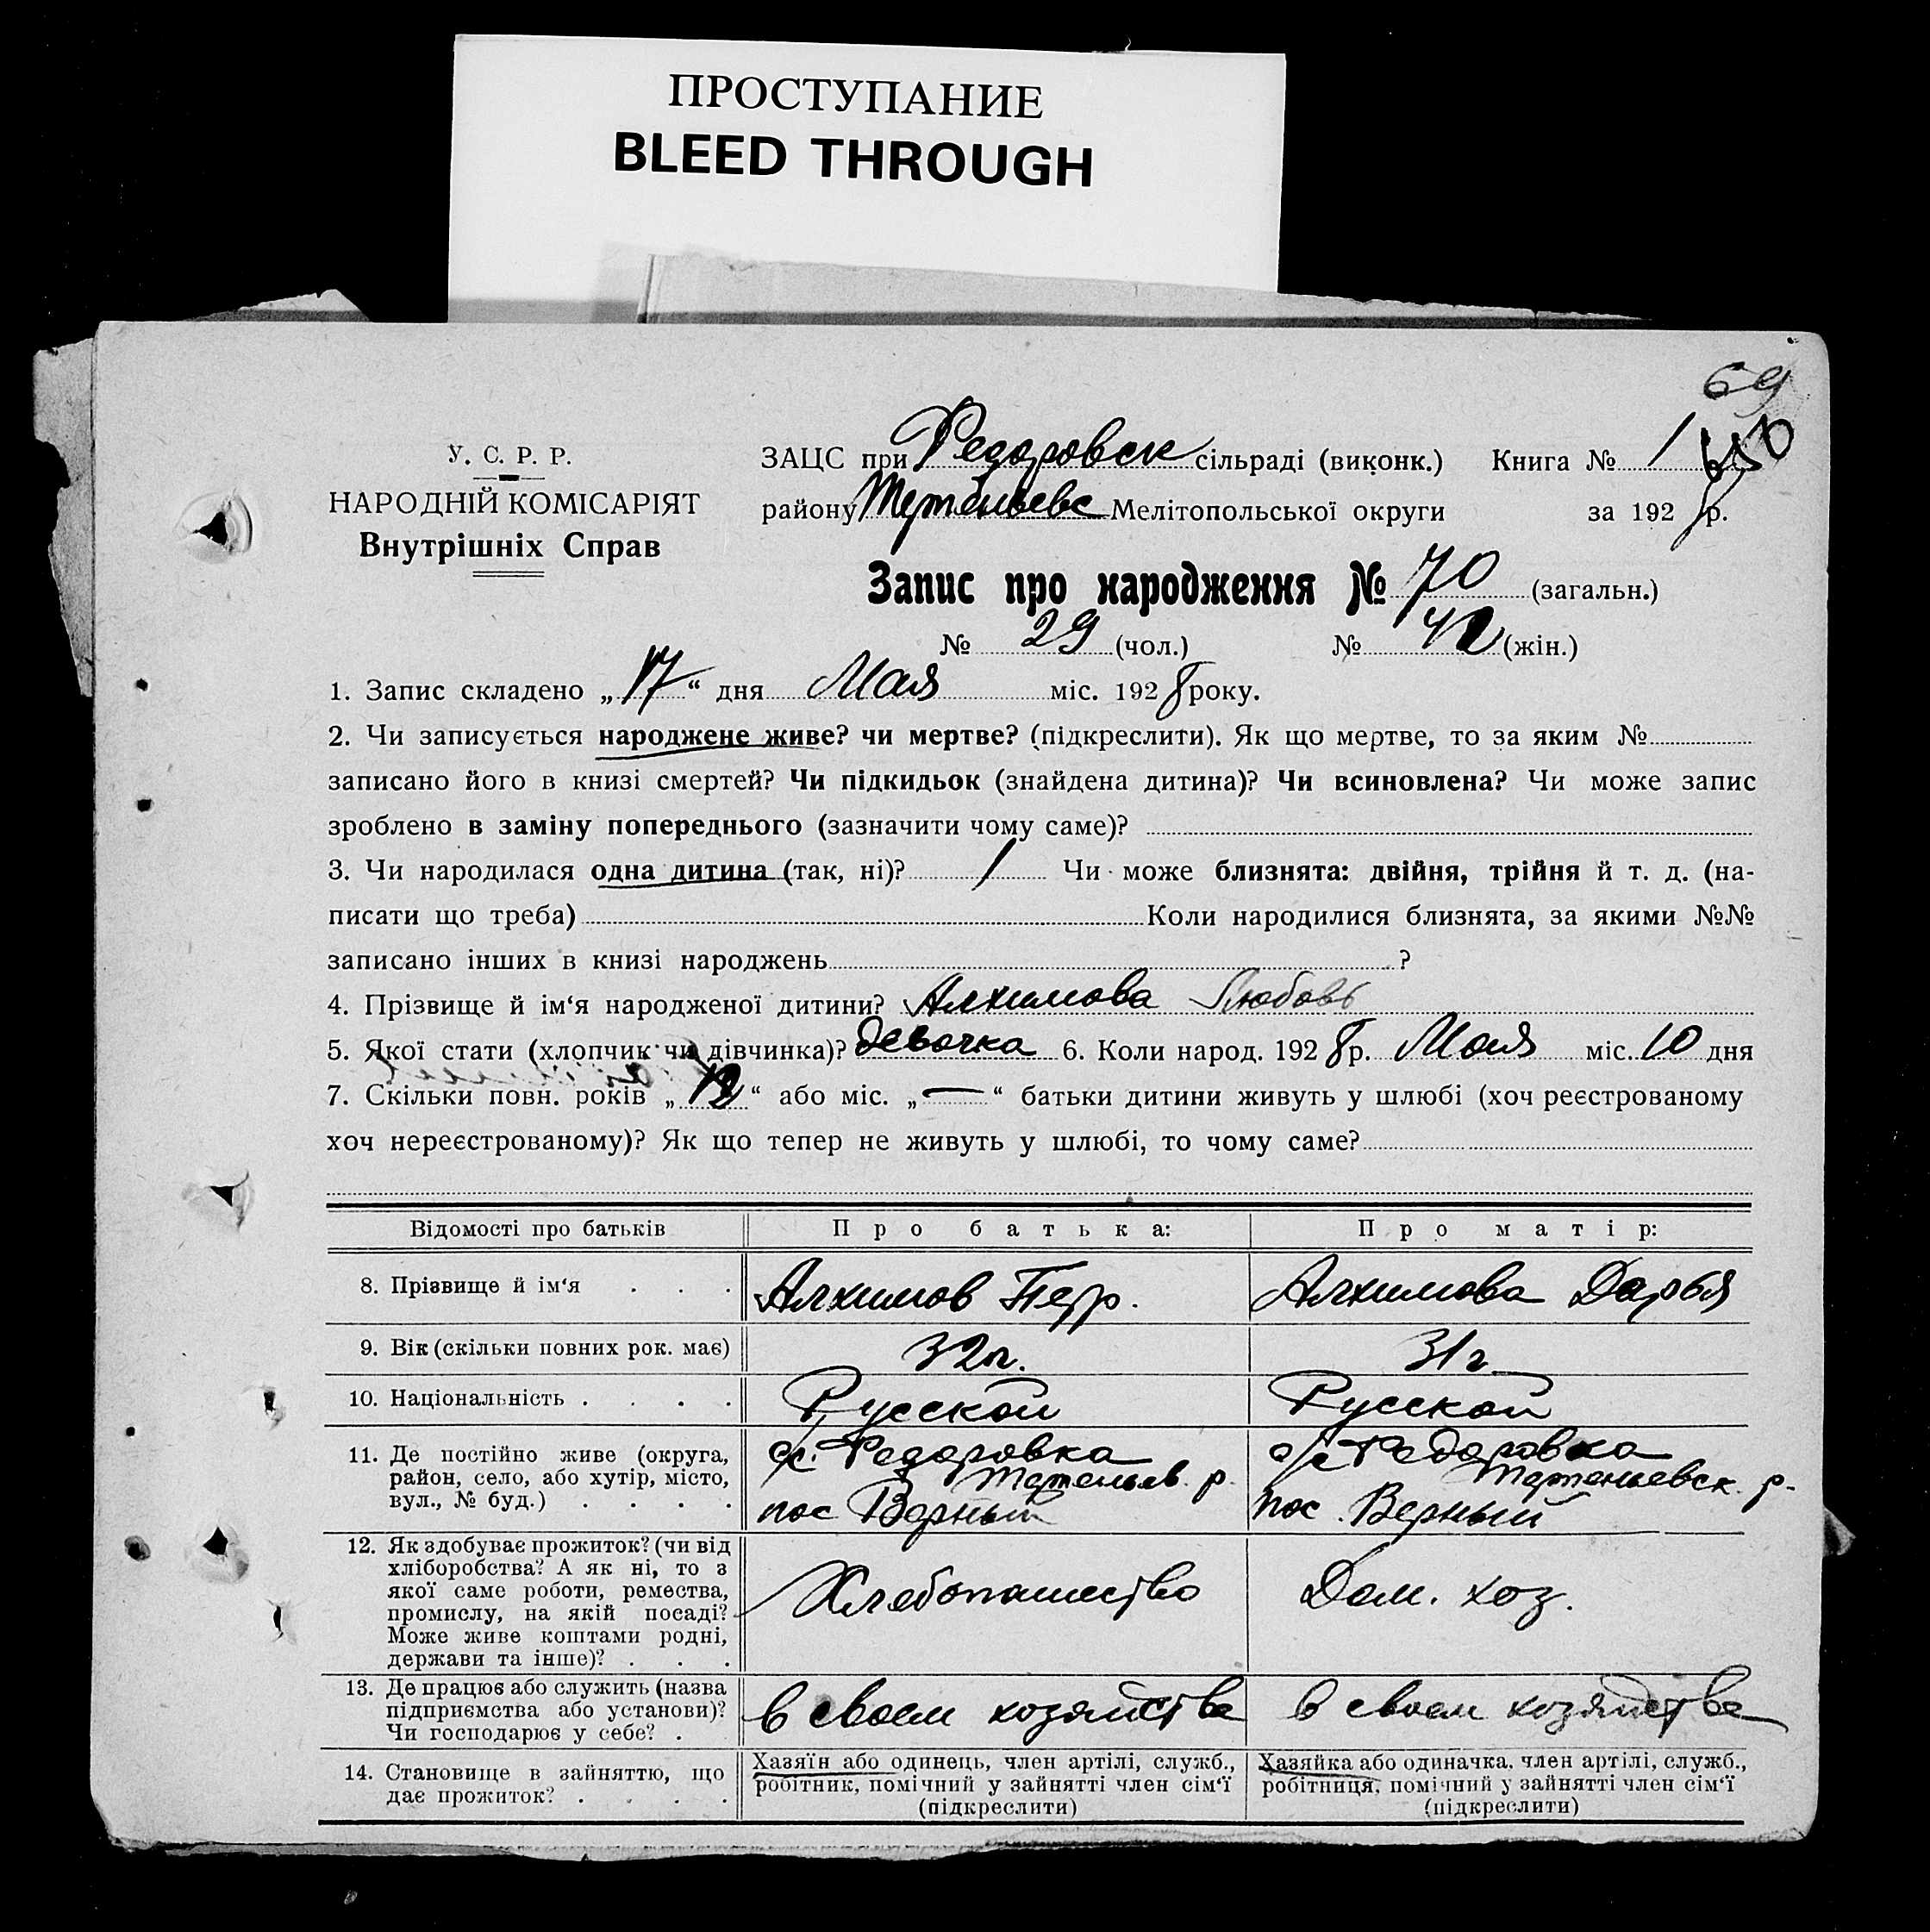 ПРОСТУПАНИЕ
BLEED THROUGH
69
У. С. Р. Р.
НАРОДНІЙ КОМІСАРІЯТ
Внутрішніх Справ
ЗАЦС при Федоровск сільраді (виконк.) Книга № 1
району Мелітопольської округи за 1928 р.
Запис про народження № 70 (загальн.)
№ 29 (чол.) № (жін.)
1. Запис складено „17“ дня Мая міс. 1928 року.
2. Чи записується народжене живе? чи мертве? (підкреслити). Як що мертве, то за яким №
записано його в книзі смертей? Чи підкидьок (знайдена дитина)? Чи всиновлена? Чи може запис
зроблено в заміну попереднього (зазначити чому саме)?
3. Чи народилася одна дитина (так, ні)? 1 Чи може близнята: двійня, трійня й т. д. (на-
писати що треба) Коли народилися близнята, за якими №№
записано інших в книзі народжень ?
4. Прізвище й ім‘я народженої дитини? Алхимова Любовь
5. Якої стати (хлопчик чи дівчинка)? девочка 6. Коли народ. 1928 р. Мая міс. 10 дня
7. Скільки повн. років „12“ або міс. „—“ батьки дитини живуть у шлюбі (хоч реєстрованому
хоч нереєстрованому)? Як що тепер не живуть у шлюбі, то чому саме?
Відомості про батьків Про батька: Про матір:
8. Прізвище й ім‘я . . . Алхимов Петр. Алхимова Дарья
9. Вік (скільки повних рок. має) 32 г. 31 г
10. Національність . . . . Русской Русской
11. Де постійно живе (округа,
район, село, або хутір, місто,
вул., № буд.) . . . .
с. Федоровка
р.
пос Верный
с Федоровка
р.
пос. Верный
12. Як здобуває прожиток? (чи від
хліборобства? А як ні, то з
якої саме роботи, ремества,
промислу, на якій посаді?
Може живе коштами родні,
держави та інше)? . . .
Хлебопашество Дом. хоз.
13. Де працює або служить (назва
підприємства або установи)?
Чи господарює у себе? .
в своем хозяйстве в своем хозяйстве
14. Становище в зайняттю, що
дає прожиток? . . . .
Хазяїн або одинець, член артілі, служб.,
робітник, помічний у зайнятті член сім‘ї
(підкреслити)
Хазяйка або одиначка, член артілі, служб.,
робітниця, помічний у зайнятті член сім‘ї
(підкреслити)